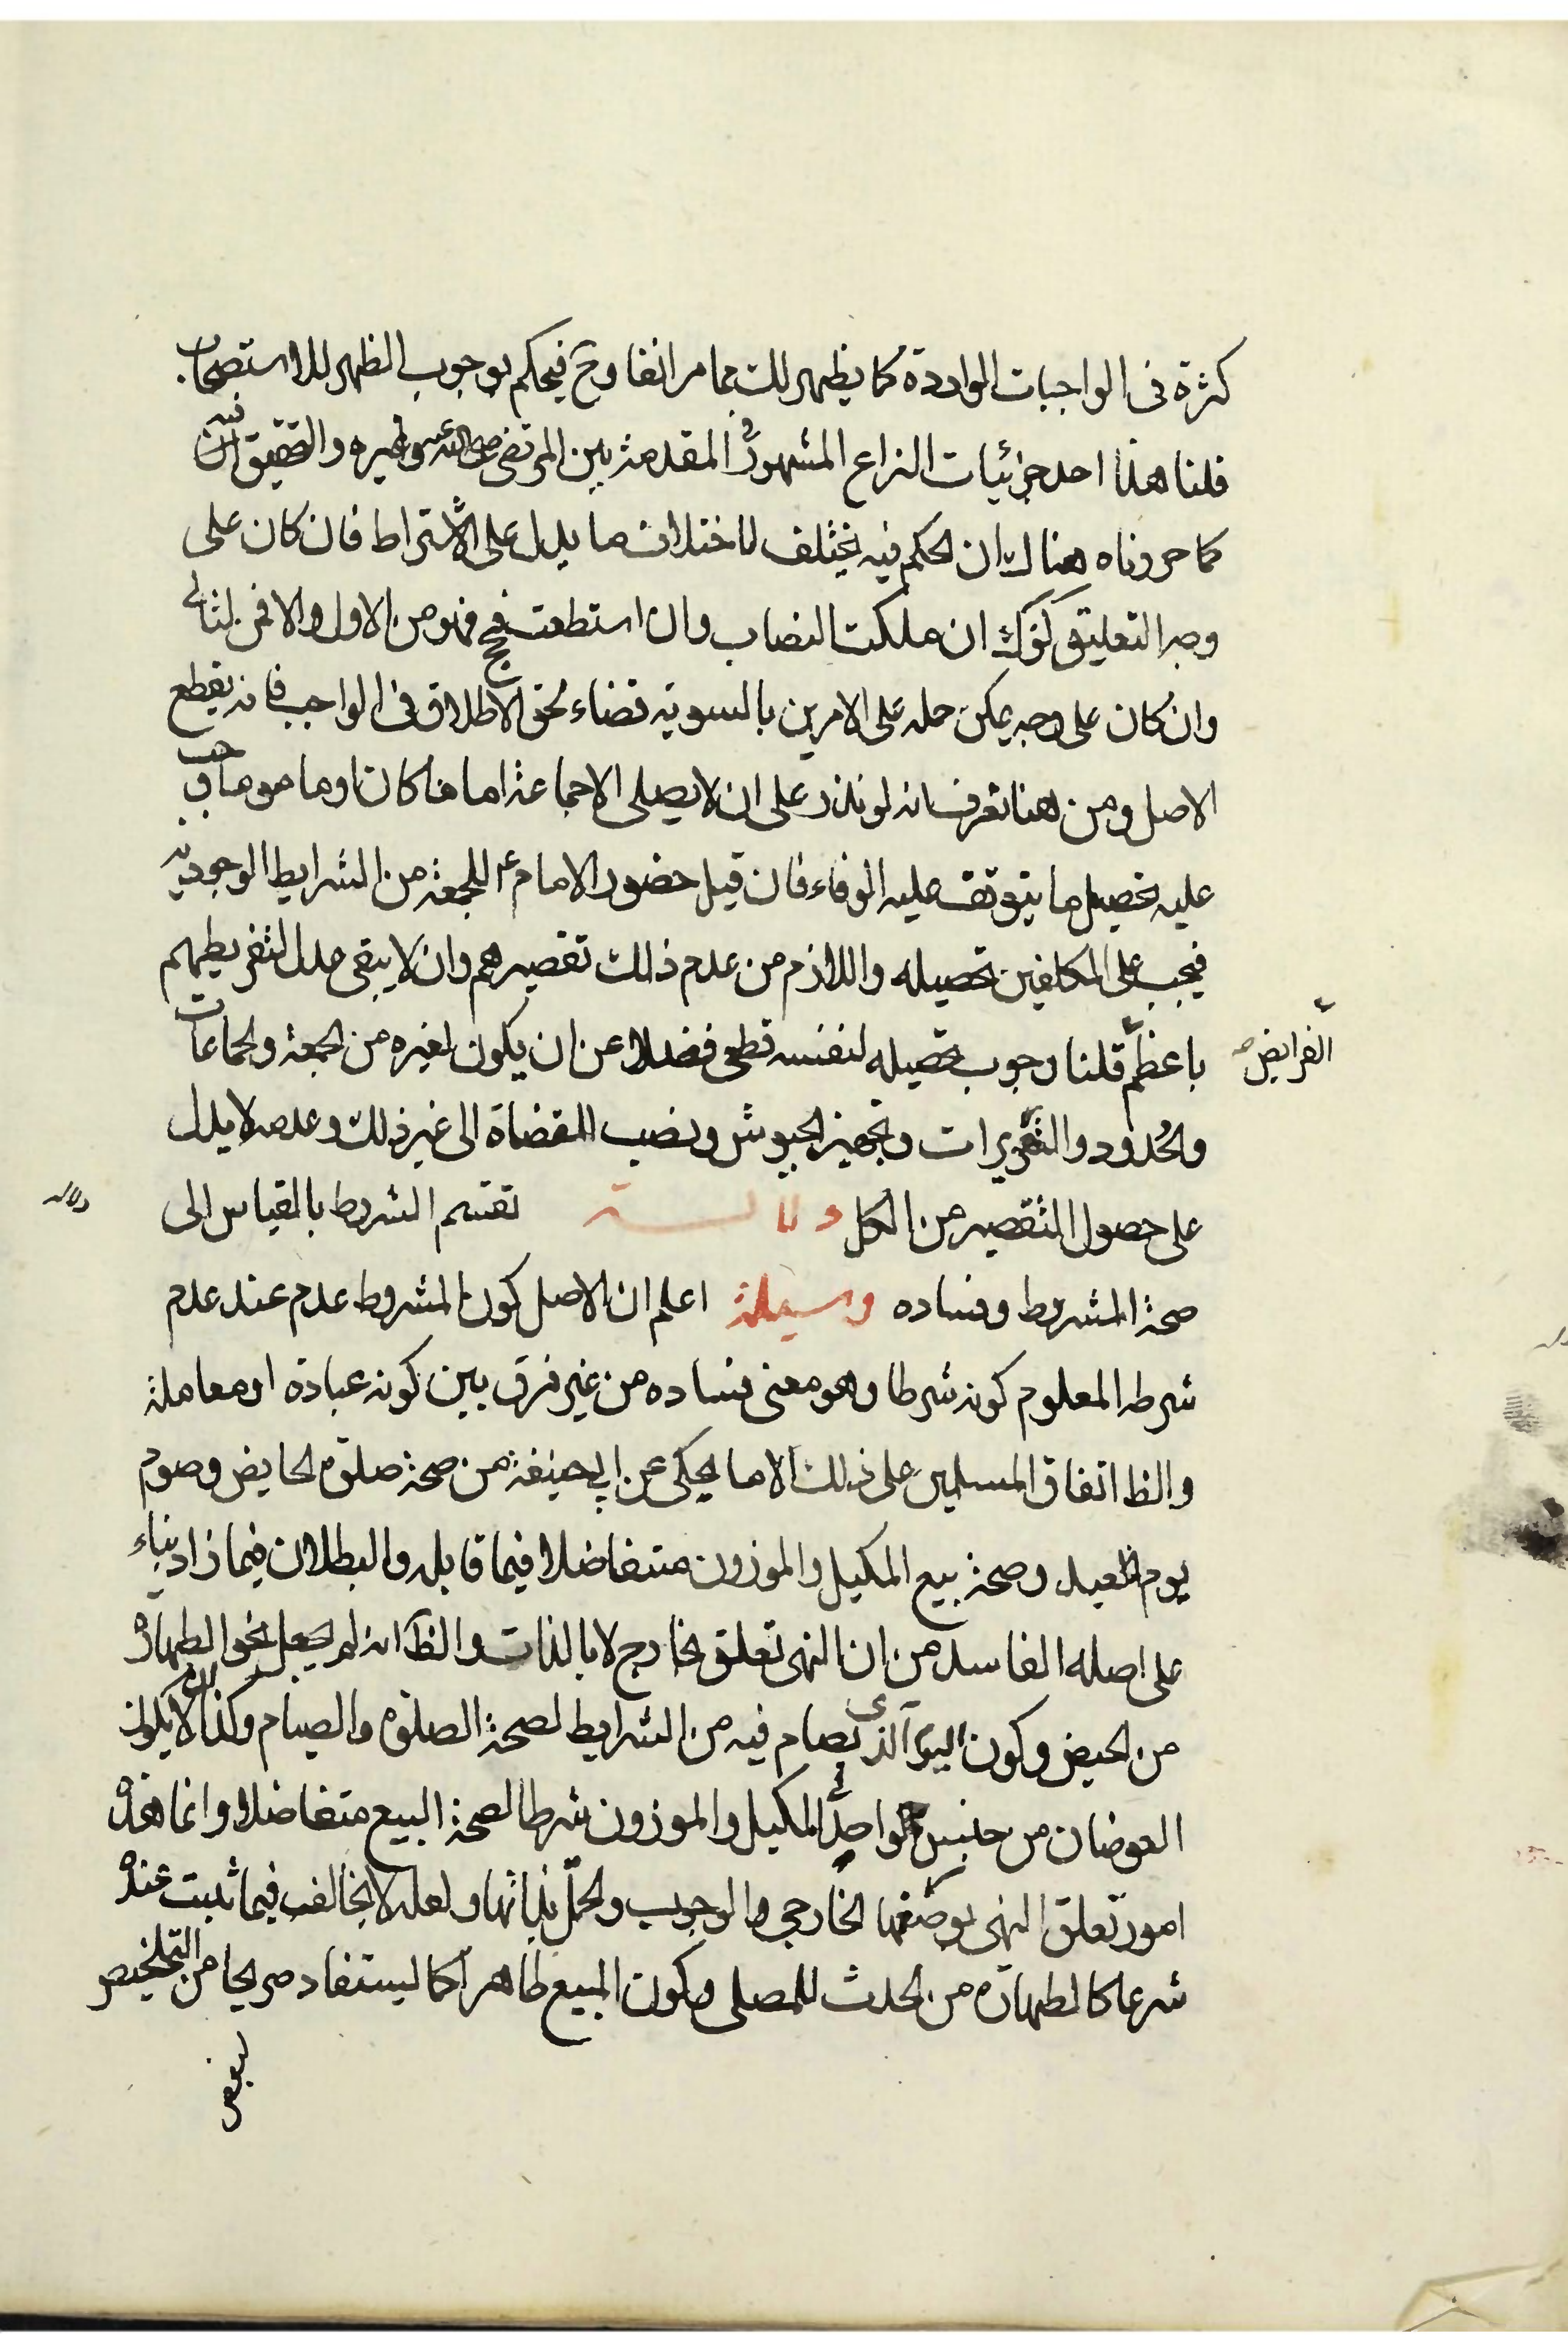 كثرة فى الواجبات الواردة كما يظهر لك مما مر انفا وح فيحكم بوجوب الظهر للاستصحاب
قلنا هذا احد جزئيات النزاع المشهور فى المقدمة بين المرتضى رضى الله عنه وغيره والتحقيق فيه ان
كما حررناه هناك ان الحكم فيه يختلف لاختلاف ما يدل على الاشتراط فان كان على
وجه التعليق كقولك ان ملكت النصاب وان استطعت فحج فهو من الاول والا فمن الثانى
وان كان على وجه يمكن حمله على الامرين بالسوية قضاء لحق الاطلاق فى الواجب فانه يقطع
الاصل ومن هنا تعرف انه لو نذر على ان لا يصلى الا جماعة اماما كان او ماموما وجب
عليه تحصيل ما يتوقف عليه الوفاء فان قيل حضور الامام ع للجمعة من الشرايط الوجودية
فيجب على المكلفين تحصيله واللازم من عدم ذلك تقصيرهم وان لا يبقى عدل لتفريطهم
باعظم الفرايض قلنا وجوب تحصيله لنفسه قطعى فضلا عن ان يكون لغيره من الجمعة والجماعات
والحدود والتعزيرات وتجهيز الجيوش ونصب القضاة الى غير ذلك وعدمه لا يدل
على حصول التقصير من الكل دلالة تقسم الشروط بالقياس الى
صحة المشروط وفساده وسيلة اعلم ان الاصل كون المشروط عدم عند عدم
شرطه المعلوم كونه شرطا وهو معنى فساده من غير فرق بين كونه عبادة او معاملة
والظ اتفاق المسلمين على ذلك الا ما يحكى عن ابى حنيفة من صحة صلوة الحايض وصوم
يوم العيد وصحة بيع المكيل والموزون متفاضلا فيما قابله والبطلان فيما زاد بناء
على اصله الفاسد من ان النهى تعلق بخارج لا بالذات والظ انه لم يجعل نحو الطهارة
من الحيض وكون اليوم الذى يصام فيه من الشرايط لصحة الصلوة والصيام وكذا لا يكون
العوضان من جنس واحد فى المكيل والموزون شرطا لصحة البيع متفاضلا وانما هذه
امور تعلق النهى بوصفها الخارجى والوجوب والحل بذاتها ولعله لا يخالف فيما ثبت عنده
شرعا كالطهارة من الحدث للمصلى وكون المبيع طاهرا كما يستفاد صريحا من التلخيص